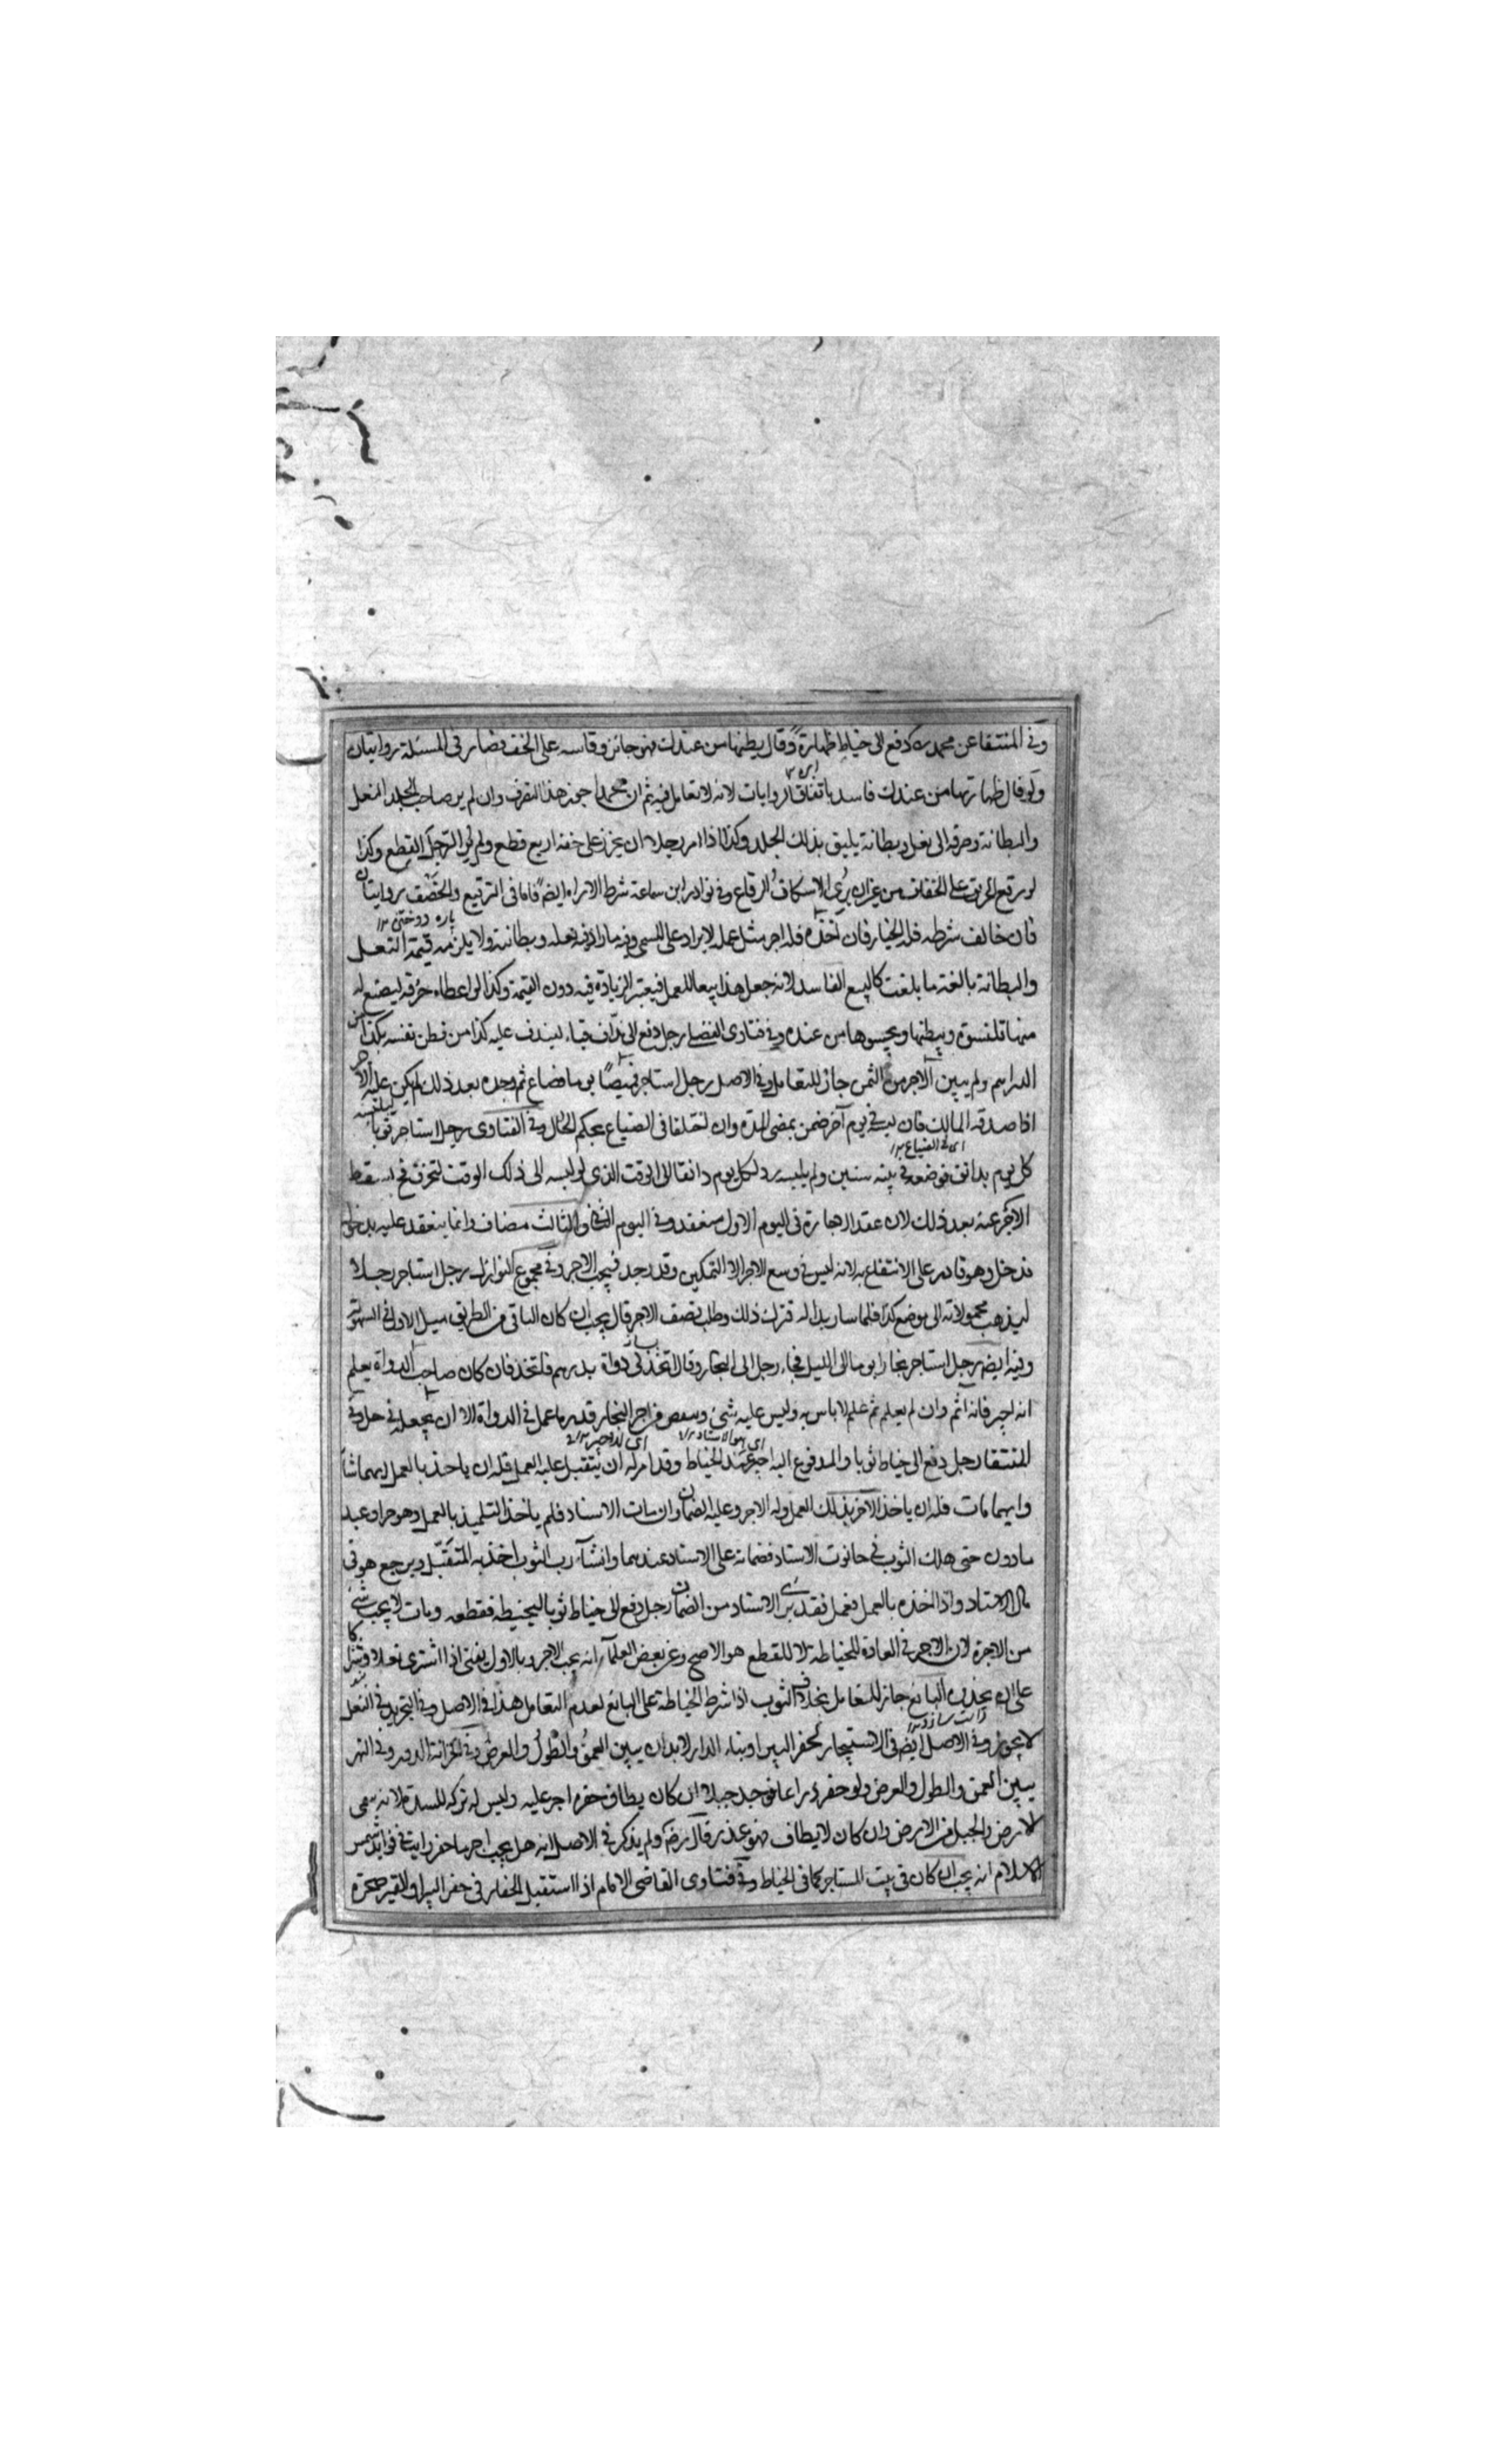 وفى المنتقا عن محمد رح دفع الى خياط ظهارة وقال بطنها من عندك فهو جائز وقاسه على الخف فصار فى المسئلة روايتان
ولو قال ظهارتها من عندك فاسد باتفاق الروايات لانه لا تعامل فيه ثم ان محمدا جوز هذا التصرف وان لم ير صاحب الجلد النعل
والبطانة وصرفه الى نعل وبطانة يليق بذلك الجلد وكذا اذا امر رجلا ان يخرز على خفه اربع قطع ولم ير الرجل القطع وكذا
لو رقع الخرق على الخفاف من غير ان يُرى الاسكاف الرقاع وفى نوادر ابن سماعة شرط الاراء ايضا فاما فى الترقيع والخصف روايتان
پاره دوختن ١٢
فان خالف شرطه فله الخيار فان اخذه فله اجر مثل عمله لا يزاد على المسمى وقيمة ما زاد فيه نعله وبطانته ولا يلزمه قيمة النعل
والبطانة بالغة ما بلغت كالبيع الفاسد لانه جعل هذا بيعا للعمل فيعتبر الزيادة فيه دون القيمة وكذا لو اعطاه خرقة ليصنع له
منها قلنسوة ويبطنها ويحشوها من عنده وفى فتاوى الفضلى رجل دفع الى نداف قباء ليندف عليه كذا من قطن نفسه بكذا من
الدراهم ولم يبين الاجر من الثمن جاز للتعامل وفى الاصل رجل استاجر قميصا يوما فضاع ثم وجده بعد ذلك لم يكن عليه الاجر
اذا صدقه المالك فان لبسه فى يوم آخر ضمن بمضى المدة وان اختلفا فى الضياع يحكم الحال وفى الفتاوى رجل استاجر ثوبا ليلبسه
اى فى الضياع ١٢
كل يوم بدانق فوضعه فى بيته سنين ولم يلبسه رد لكل يوم دانقا الى الوقت الذى لو لبسه الى ذلك الوقت لتخرق فح يسقط
الاجر عنه بعد ذلك لان عقد الاجارة فى اليوم الاول منعقد وفى اليوم الثانى والثالث مضاف وانما ينعقد عليه بدخوله
فدخل وهو قادر على الانتفاع به لانه ليس فى وسع الاجر الا التمكين وقد وجد فيجب الاجر وفى مجموع النوازل رجل استاجر رجلا
ليذهب بحمولاته الى موضع كذا فلما سار بدا له فترك ذلك وطلب نصف الاجر قال يجب ان كان الباقى من الطريق مثل الاول فى السهولة
وفيه ايضا رجل استاجر نجارا يوما الى الليل فجاء رجل الى النجار وقال اتخذ لى دواة بدرهم فاتخذ فان كان صاحب الدواة يعلم
انه اجير فانه آثم وان لم يعلم ثم علم لا باس به وليس عليه شئ وينقص من اجر النجار قدر ما عمل فى الدواة الا ان يجعله فى حل وفى
اى هو الاستاد ١٢
المنتقا رجل دفع الى خياط ثوبا والمدفوع اليه اجير عند الخياط وقد امر له ان يتقبل عليه العمل فله ان ياخذ بالعمل ايهما شاء
وايهما مات فله ان ياخذ الآخر بذلك العمل وله الاجر وعليه الضمان وان مات الاستاد فلم ياخذ التلميذ بالعمل وهو حر او عبد
مأذون حتى هلك الثوب فى حانوت الاستاد فضمانه على الاستاد عندهما وان شاء رب الثوب اخذ به المتقبل ويرجع هو فى
مال الاستاد واذا اخذه بالعمل فعمل فقد برئ الاستاد من الضمان رجل دفع الى خياط ثوبا ليخيطه فقطعه ومات لا يجب شئ
من الاجرة لان الاجر فى العادة للخياطة لا للقطع هو الاصح وعن بعض العلماء انه يجب الاجر وبالاول يفتى اذا اشترى نعلا وشراكا
على ان يحذوه البائع جاز للتعامل بخلاف الثوب اذا شرط الخياطة على البائع لعدم التعامل هذا فى الاصل وفى التجريد فى النعل
لا يجوز وفى الاصل ايضا فى الاستيجار لحفر البير او بناء الدار لا بد ان يبين العمق والطول والعرض وفى الخزانة الدور وفى النهر
يبين العمق والطول والعرض ولو حفر ذراعا فوجد جبلا ان كان يطاق حفره اجبر عليه وليس له تركه للشدة لانه سمى
الارض والجبل من الارض وان كان لا يطاق فهو عذر قال رضه ولم يذكر فى الاصل انه هل يجب اجر ما حفر رايت فى فوائد شمس
الاسلام انه يجب ان كان فى بيت المستاجر كما فى الخياط وفى فتاوى القاضى الامام اذا استقبل الحفار فى حفر البير او القبر صخرة